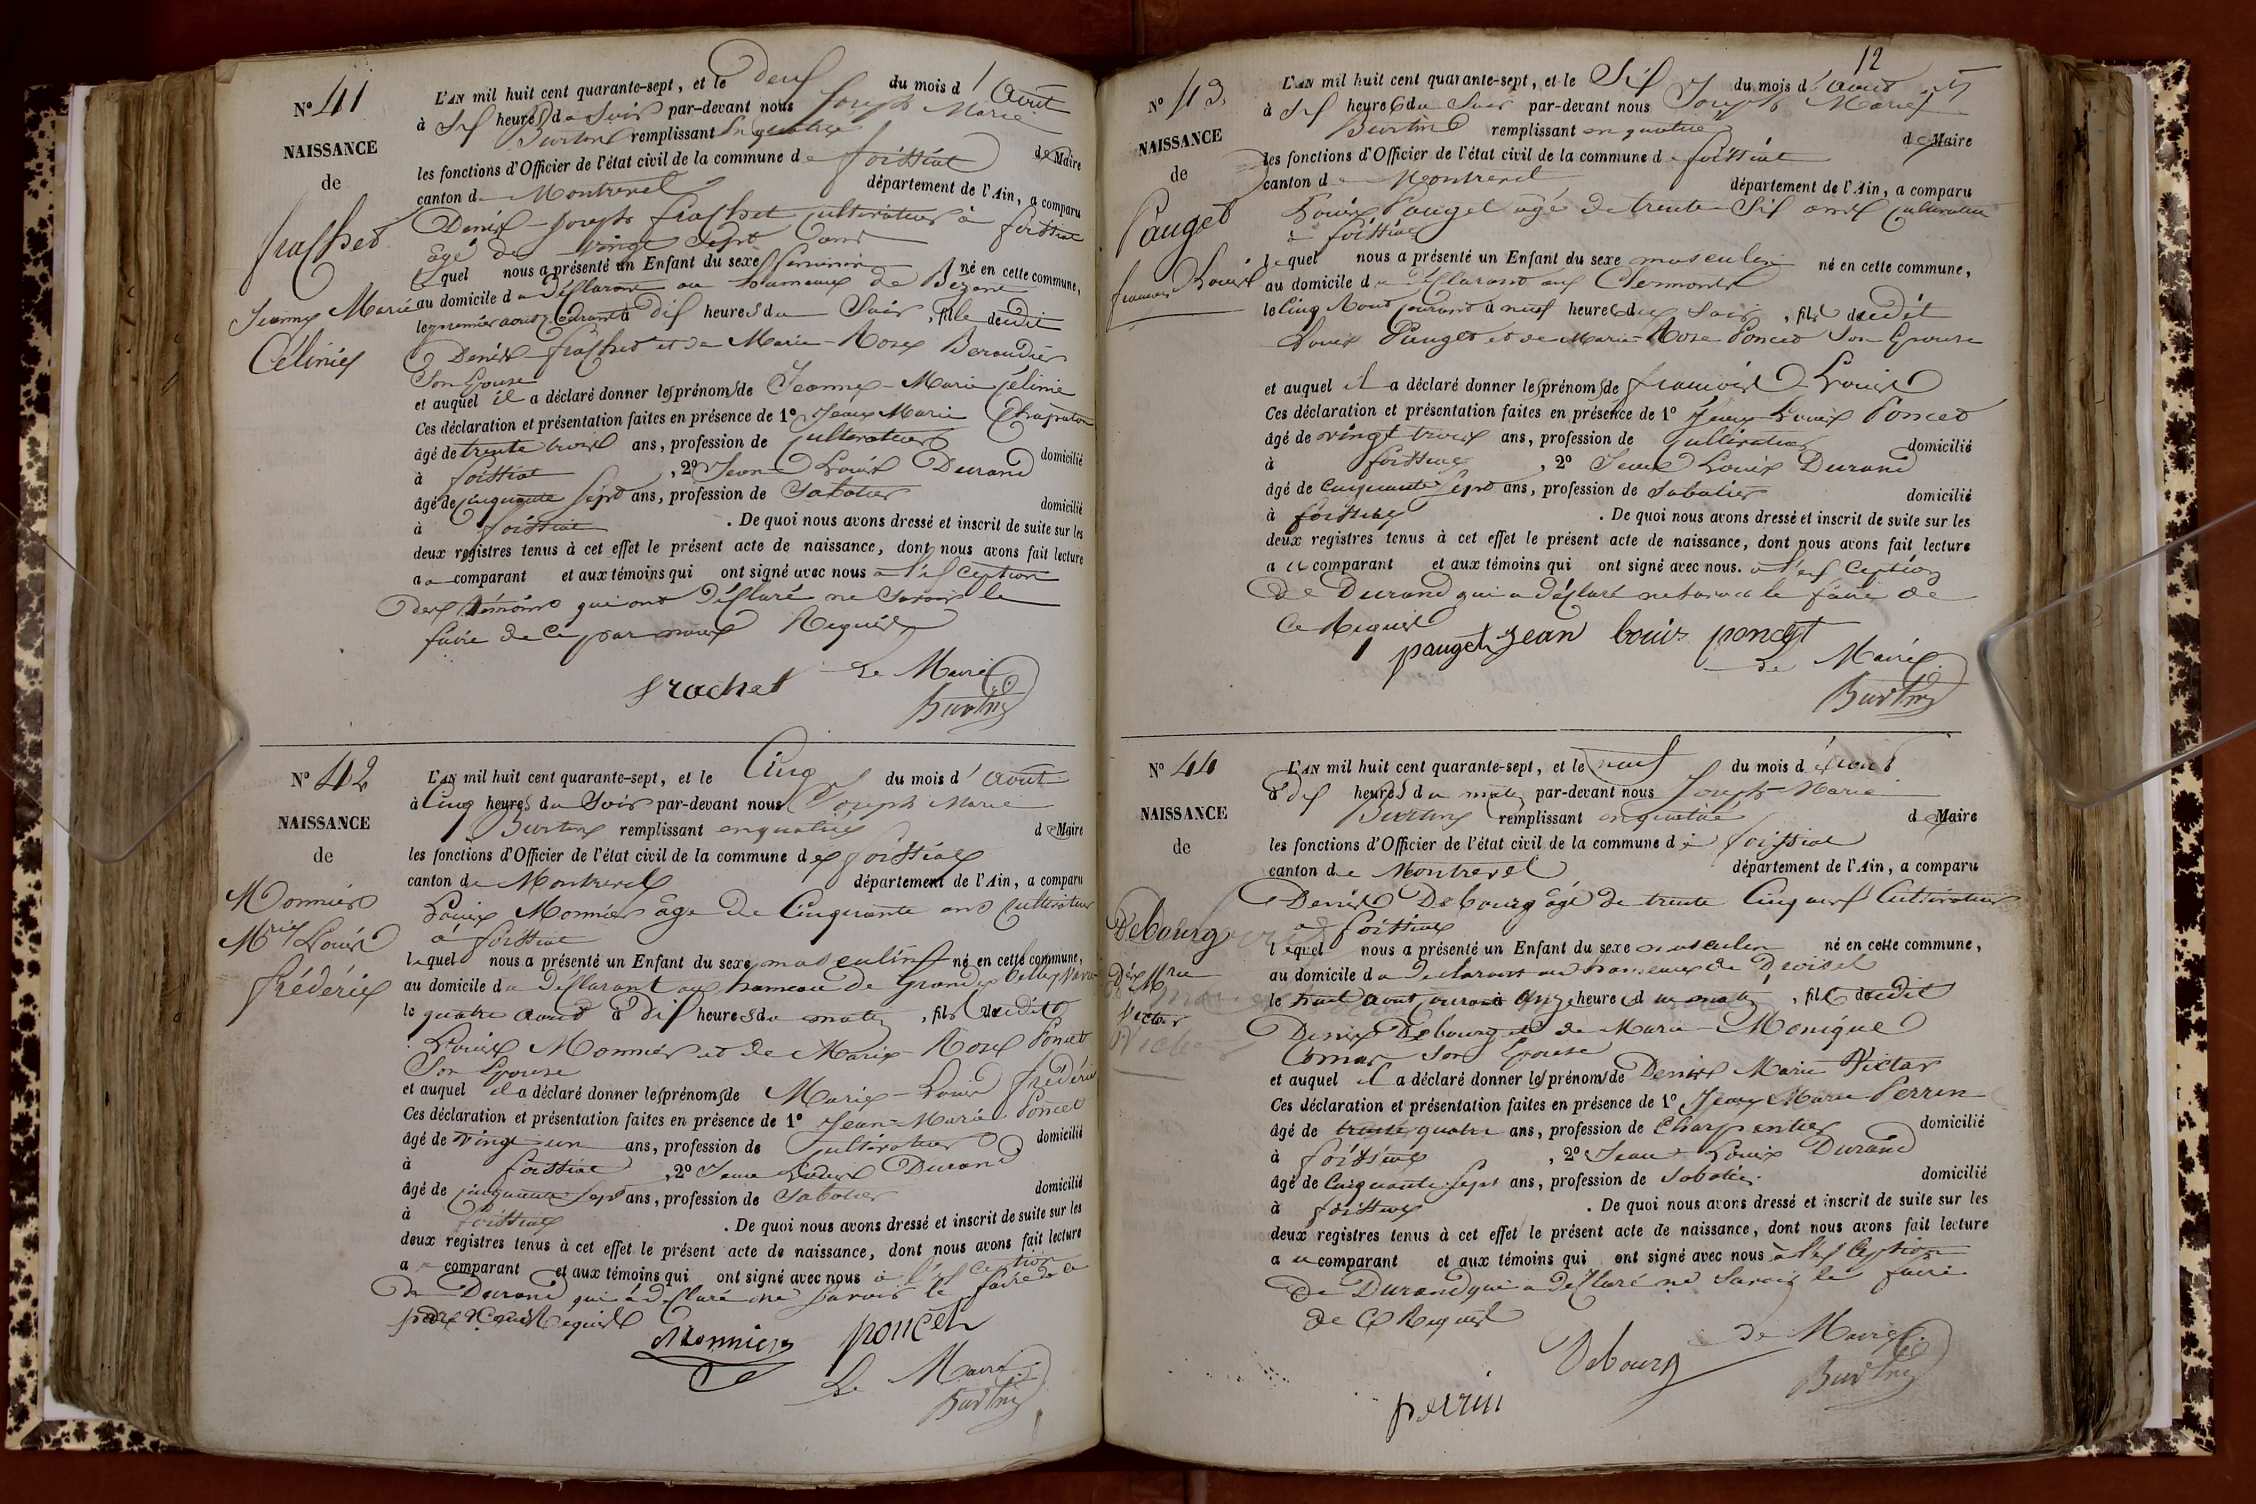 N° 41
NAISSANCE
de
frachet
Jeanne Marie
Célinie
L'AN mil huit cent quarante-sept, et le deux du mois d'Août
à six heures du Soir par-devant nous Joseph Marie
Burtin remplissant en qualité de Maire
les fonctions d'Officier de l'état civil de la commune de foissiat
canton de Montrevel département de l'Ain, a comparu
Denis-Joseph frachet cultivateur à foissiat
âgé de vingt sept ans
lequel nous a présenté un Enfant du sexe féminin né en cette commune,
au domicile du déclarant au hameau de
le premier août courant à dix heures du Soir, fille dudit
Denis frachet et de Marie-Rose Beraudier
Son Epouse
et auquel il a déclaré donner les prénoms de Jeanne-Marie Célinie
Ces déclaration et présentation faites en présence de 1° Jean Marie
âgé de trente trois ans, profession de cultivateur domicilié
à foissiat, 2° Jean Louis Durand
âgé de cinquante sept ans, profession de Sabotier domicilié
à foissiat. De quoi nous avons dressé et inscrit de suite sur les
deux registres tenus à cet effet le présent acte de naissance, dont nous avons fait lecture
au comparant et aux témoins qui ont signé avec nous à l'exception
des témoins qui ont déclaré ne Savoir le
faire de ce par nous Requis
frachet Le Maire
Burtin
N° 42
NAISSANCE
de
Monnier
Mrie Louis
frédéric
L'AN mil huit cent quarante-sept, et le Cinq du mois d'Août
à Cinq heures du Soir par-devant nous Joseph Marie
Burtin remplissant en qualité de Maire
les fonctions d'Officier de l'état civil de la commune de foissiat
canton de Montrevel département de l'Ain, a comparu
Louis Monnier âgé de Cinquante ans cultivateur
à foissiat
lequel nous a présenté un Enfant du sexe masculin né en cette commune,
au domicile du déclarant au hameau de Grandes
le quatre août à dix heures du matin, fils dudit
Louis Monnier et de Marie-Rose Poncet
Son Epouse
et auquel il a déclaré donner les prénoms de Marie-Louis frédéric
Ces déclaration et présentation faites en présence de 1° Jean-Marie Poncet
âgé de vingt un ans, profession de cultivateur domicilié
à foissiat, 2° Jean Louis Durand
âgé de cinquante sept ans, profession de Sabotier domicilié
à foissiat. De quoi nous avons dressé et inscrit de suite sur les
deux registres tenus à cet effet le présent acte de naissance, dont nous avons fait lecture
au comparant et aux témoins qui ont signé avec nous à l'exception
de Durand qui a déclaré ne Savoir le faire de ce
Requis
Monnier poncet
Le Maire
Burtin
12
N° 43
NAISSANCE
de
Pauget
francois Louis
L'AN mil huit cent quarante-sept, et le Six du mois d'août
à Six heures du Soir par-devant nous Joseph Marie
Burtin remplissant en qualité de Maire
les fonctions d'Officier de l'état civil de la commune de foissiat
canton de Montrevel département de l'Ain, a comparu
Louis Pauget âgé de trente Six ans cultivateur
à foissiat
lequel nous a présenté un Enfant du sexe masculin né en cette commune,
au domicile du déclarant aux Clermonts
le Cinq Août courant à neuf heures du Soir, fils dudit
Louis Pauget et de Marie-Rose Poncet Son Epouse
et auquel il a déclaré donner les prénoms de francois Louis
Ces déclaration et présentation faites en présence de 1° Jean Louis Poncet
âgé de vingt trois ans, profession de Cultivateur domicilié
à foissiat, 2° Jean Louis Durand
âgé de Cinquante Sept ans, profession de Sabotier domicilié
à foissiat. De quoi nous avons dressé et inscrit de suite sur les
deux registres tenus à cet effet le présent acte de naissance, dont nous avons fait lecture
au comparant et aux témoins qui ont signé avec nous. à l'exception
de Durand qui a déclaré ne Savoir le faire de
Ce Requis
pauget jean louis poncet
Le Maire
Burtin
N° 44
NAISSANCE
de
Debourg
Dis Mrie
Victor
L'AN mil huit cent quarante-sept, et le neuf du mois d'Août
à dix heures du matin par-devant nous Joseph-Marie
Burtin remplissant en qualité de Maire
les fonctions d'Officier de l'état civil de la commune de foissiat
canton de Montrevel département de l'Ain, a comparu
Denis Debourg âgé de trente Cinq ans Cultivateur
à foissiat
lequel nous a présenté un Enfant du sexe masculin né en cette commune,
au domicile du déclarant au hameau de
le huit août courant à onze heures du matin, fils dudit
Denis Debourg et de Marie-Monique
Comas Son Epouse
et auquel il a déclaré donner les prénoms de Denis Marie Victor
Ces déclaration et présentation faites en présence de 1° Jean Marie Perrin
âgé de trente quatre ans, profession de Charpentier domicilié
à foissiat, 2° Jean-Louis Durand
âgé de Cinquante-sept ans, profession de Sabotier domicilié
à foissiat. De quoi nous avons dressé et inscrit de suite sur les
deux registres tenus à cet effet le présent acte de naissance, dont nous avons fait lecture
au comparant et aux témoins qui ont signé avec nous à l'exception
de Durand qui a déclaré ne Savoir le faire
de Ce Requis
Debourg Le Maire
perrin Burtin